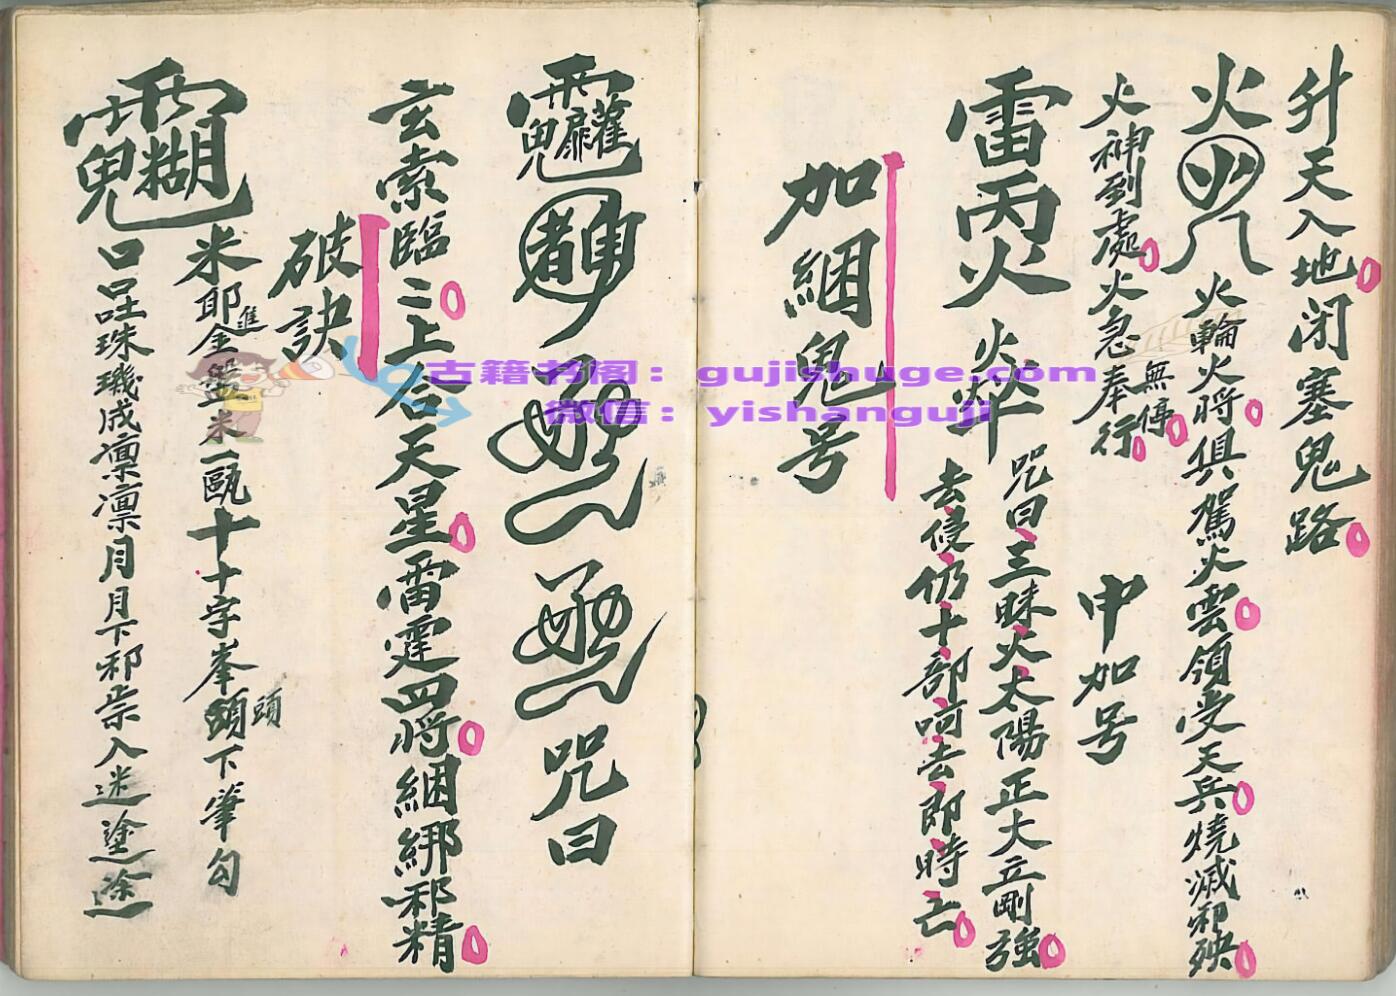 升天入地闭塞鬼路
火火八火輪火将俱駕火雲領受天兵燒滅邪殃
火神到處火急奉行
無停
申加号
雷丙火
咒曰三昧火太陽正大立剛強
去侵仍十部呵去即時亡
加綑鬼号
咒曰
玄索臨二上台天星雷霆四将綑綁邪精
破訣
米耶金盤米一甌十十字峯頭下筆勾
進
頭
口口吐珠璣成凛凛月月下邪祟入迷途途
古籍书阁：gujishuge.com
微信：yishanguji